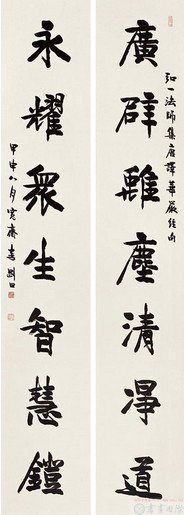 弘一法師集唐譯華嚴經句
廣辟離塵清淨道
永耀衆生智慧鐙
甲申八月寬齋李剛田